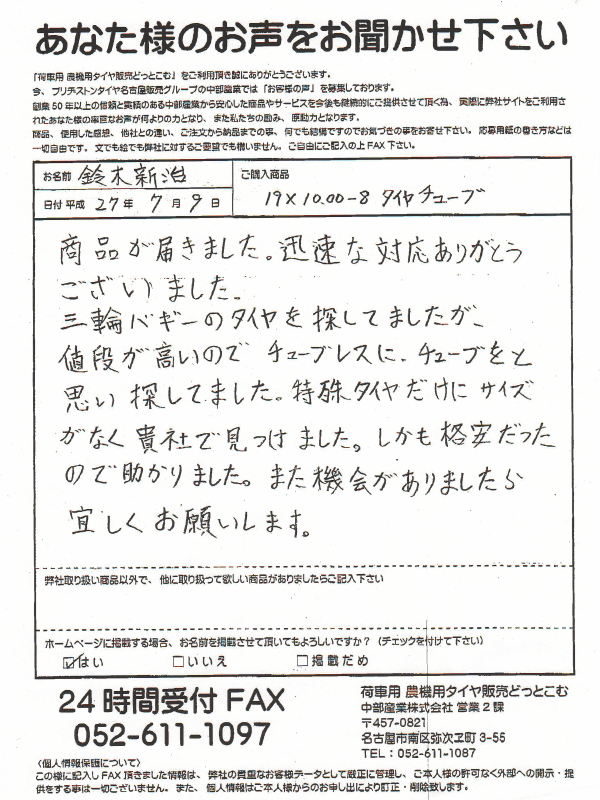 あなた様のお声をお聞かせ下さい
「荷車用 農機用タイヤ販売どっとこむ」をご利用頂き誠にありがとうございます。
今、ブリヂストンタイヤ名古屋販売グループの中部産業では「お客様の声」を募集しております。
創業50年以上の信頼と実績のある中部産業から安心した商品やサービスを今後も継続的にご提供させて頂く為、実際に弊社サイトをご利用さ
れたあなた様の率直なお声が何よりの力となり、また私たちの励み、原動力となります。
商品、使用した感想、他社との違い、ご注文から納品までの事、何でも結構ですのでお気づきの事をお寄せ下さい。応募用紙の書き方などは
一切自由です。文でも絵でも弊社に対するご要望でも構いません。ご自由にご記入の上FAX下さい。
お名前 鈴木新治
ご購入商品
日付 平成 27年 7月 9日
19×10.00-8 タイヤチューブ
商品が届きました。迅速な対応ありがとう
ございました。
三輪バギーのタイヤを探してましたが、
値段が高いので チューブレスに、チューブをと
思い 探してました。特殊タイヤだけに サイズ
がなく 貴社で見つけました。しかも格安だった
ので助かりました。また機会がありましたら
宜しくお願いします。
弊社取り扱い商品以外で、他に取り扱って欲しい商品がありましたらご記入下さい
ホームページに掲載する場合、お名前を掲載させて頂いてもよろしいですか?(チェックを付けて下さい)
☑はい □いいえ □掲載だめ
24時間受付FAX
052-611-1097
荷車用 農機用タイヤ販売どっとこむ
中部産業株式会社 営業2課
〒457-0821
名古屋市南区弥次ヱ町3-55
TEL:052-611-1087
〈個人情報保護について〉
この様に記入しFAX頂きました情報は、弊社の貴重なお客様データとして厳正に管理し、ご本人様の許可なく外部への開示・提
供をする事は一切ございません。また、個人情報はご本人様からのお申し出により訂正・削除致します。